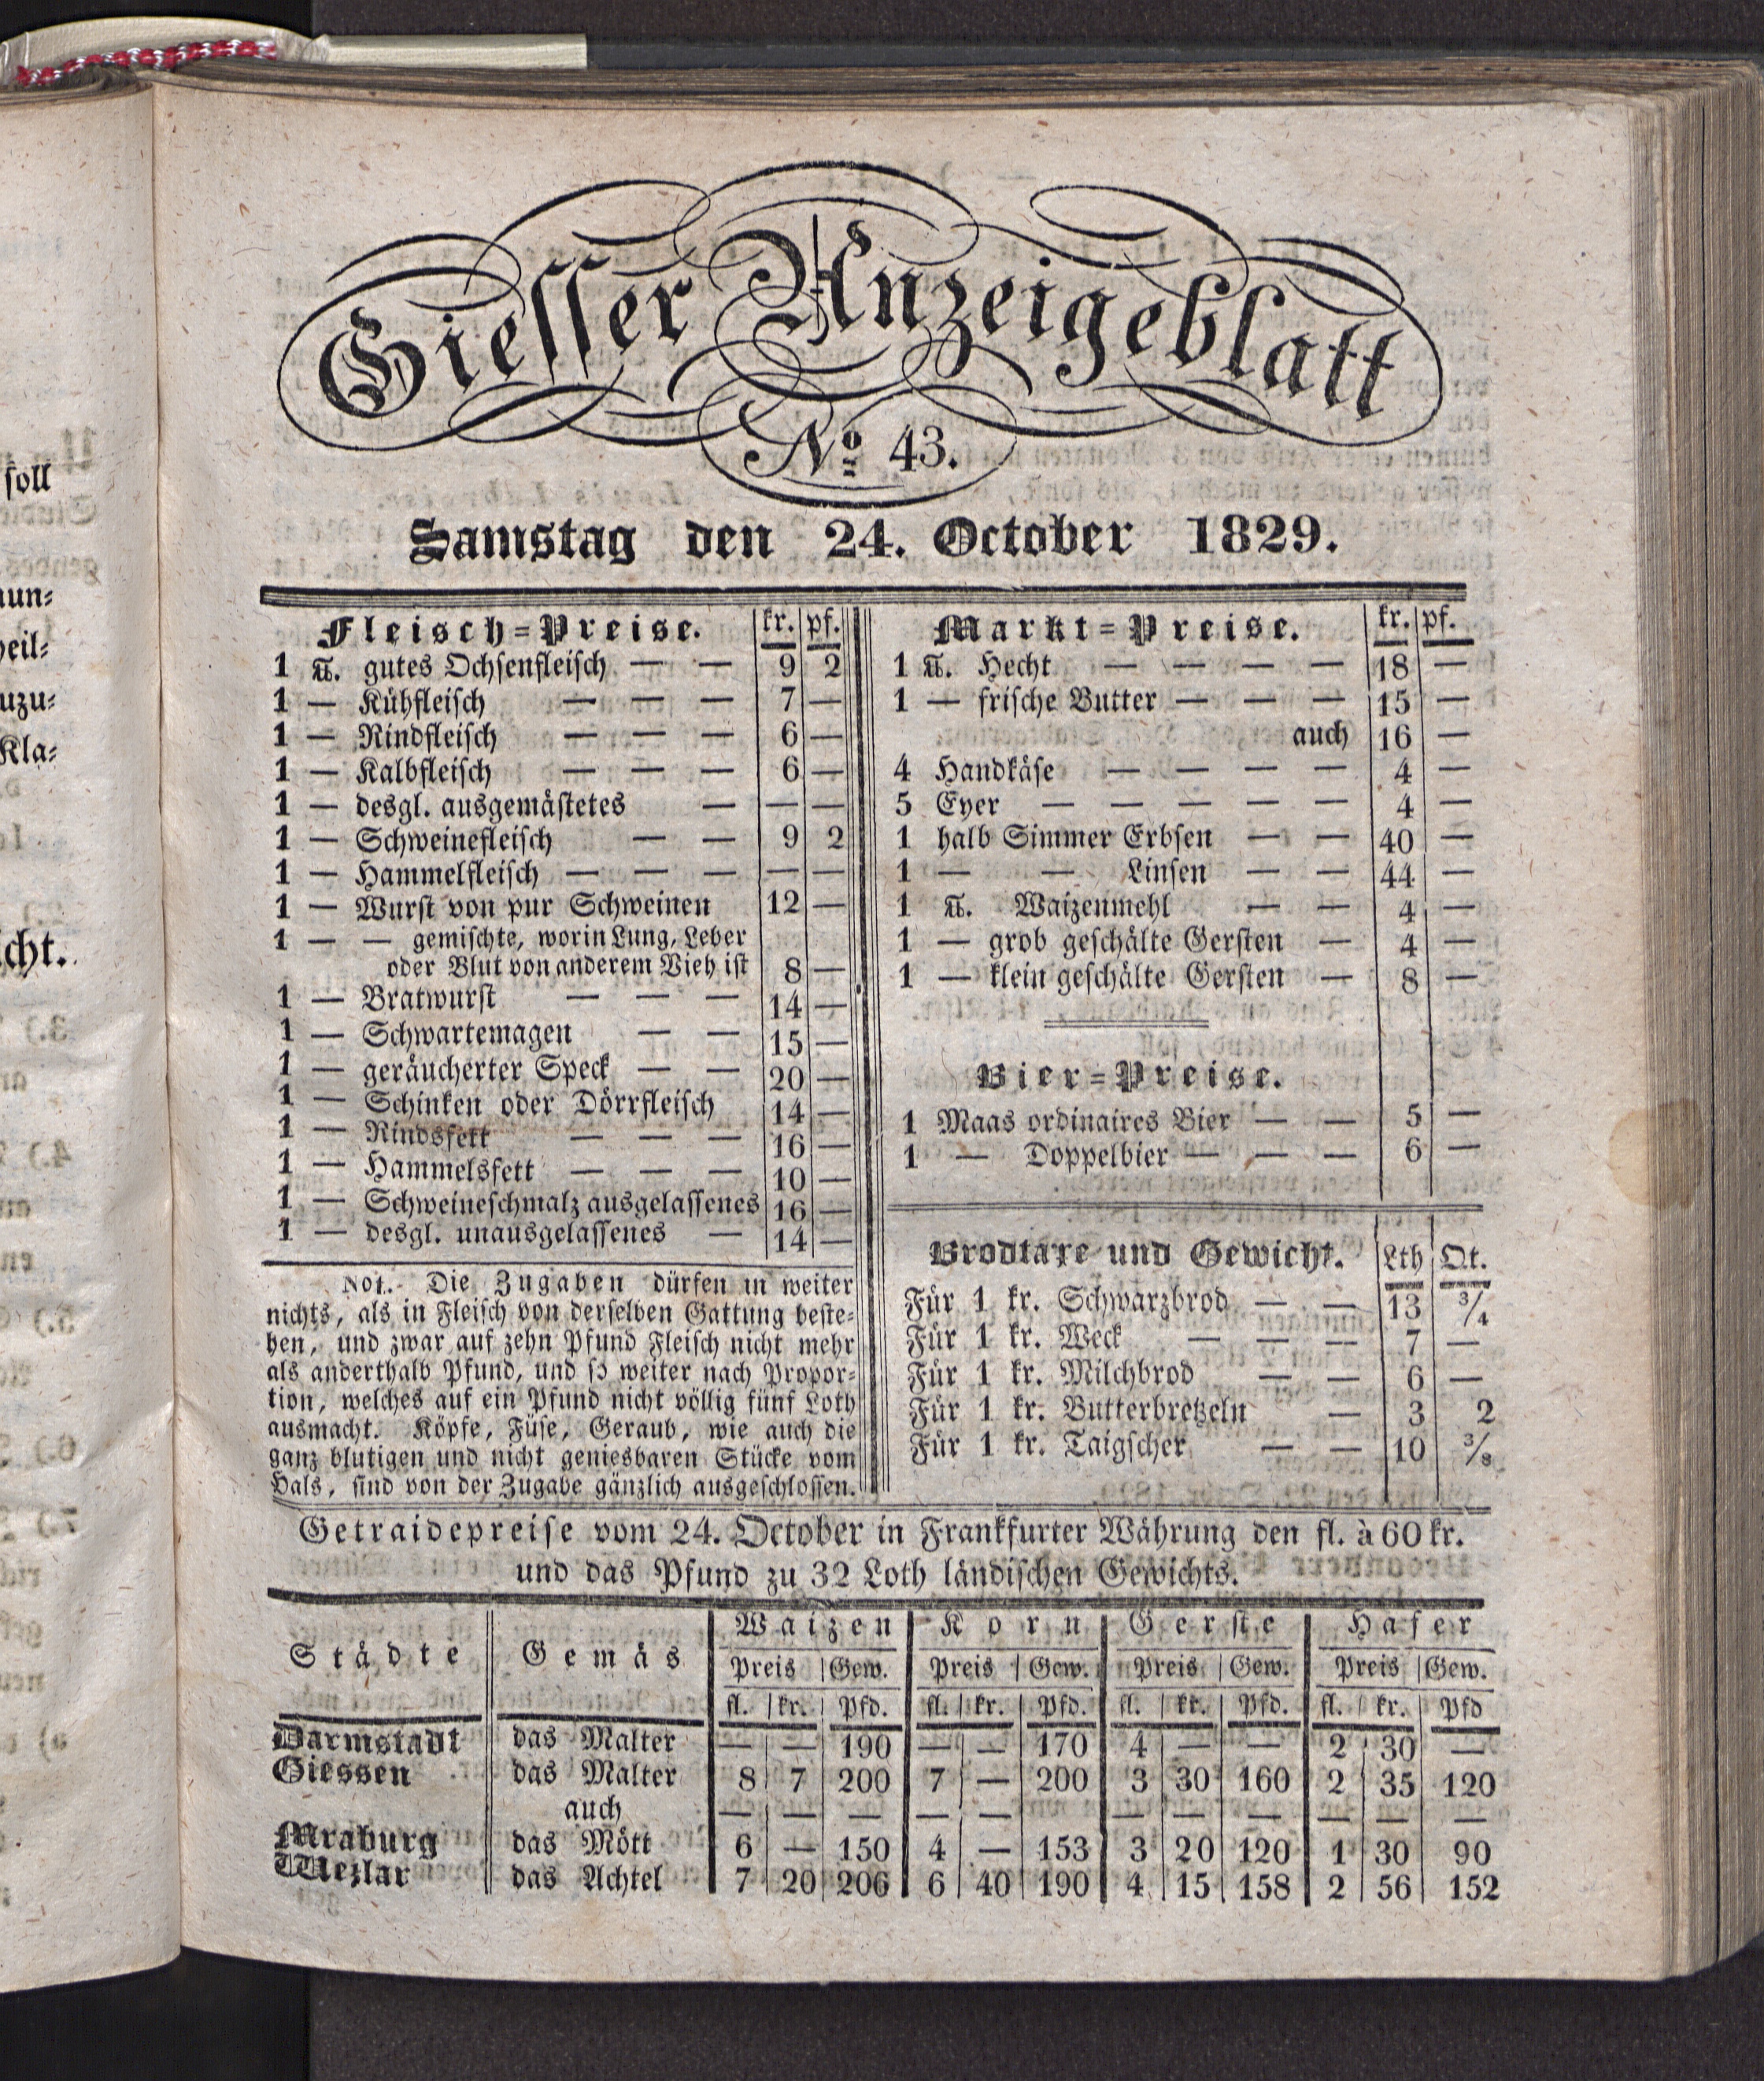 Giesser Anzeigeblatt
No 43.
Samstag den 24. October 1829.
Fleisch=Preise. kr. pf.
1 ℔. gutes Ochsenfleisch — — 9 2
1 — Kühfleisch — — — 7 —
1 — Rindfleisch — — — 6 —
1 — Kalbfleisch — — — 6 —
1 — desgl. ausgemästetes — — —
1 — Schweinefleisch — — 9 2
1 — Hammelfleisch — — — — —
1 — Wurst von pur Schweinen 12 —
1 — — gemischte, worin Lung, Leber
oder Blut von anderem Vieh ist 8 —
1 — Bratwurst — — — 14 —
1 — Schwartemagen — — 15 —
1 — geräucherter Speck — — 20 —
1 — Schinken oder Dörrfleisch 14 —
1 — Rindsfett — — — 16 —
1 — Hammelsfett — — — 10 —
1 — Schweineschmalz ausgelassenes 16 —
1 — desgl. unausgelassenes — 14 —
Not. Die Zugaben dürfen in weiter
nichts, als in Fleisch von derselben Gattung beste=
hen, und zwar auf zehn Pfund Fleisch nicht mehr
als anderthalb Pfund, und so weiter nach Propor=
tion, welches auf ein Pfund nicht völlig fünf Loth
ausmacht. Köpfe, Füse, Geraub, wie auch die
ganz blutigen und nicht geniesbaren Stücke vom
Hals, sind von der Zugabe gänzlich ausgeschlossen.
Markt=Preise. kr. pf.
1 ℔. Hecht — — — — 18 —
1 — frische Butter — — — 15 —
auch 16 —
4 Handkäse — — — — 4 —
5 Eyer — — — — — 4 —
1 halb Simmer Erbsen — — 40 —
1 — — Linsen — — 44 —
1 ℔. Waizenmehl — — 4 —
1 — grob geschälte Gersten — 4 —
1 — klein geschälte Gersten — 8 —
Bier=Preise.
1 Maas ordinaires Bier — — 5 —
1 — Doppelbier — — — 6 —
Brodtaxe und Gewicht. Lth Qt.
Für 1 kr. Schwarzbrod — — 13 3/4
Für 1 kr. Weck — — — 7 —
Für 1 kr. Milchbrod — — 6 —
Für 1 kr. Butterbretzeln — 3 2
Für 1 kr. Taigscher — — 10 3/8
Getraidepreise vom 24. October in Frankfurter Währung den fl. à 60 kr.
und das Pfund zu 32 Loth ländischen Gewichts.
Städte Gemäs Waizen Korn Gerste Hafer
Preis Gew. Preis Gew. Preis Gew. Preis Gew.
fl. kr. Pfd. fl. kr. Pfd. fl. kr. Pfd. fl. kr. Pfd
Darmstadt das Malter — — 190 — — 170 4 — — 2 30 —
Giessen das Malter 8 7 200 7 — 200 3 30 160 2 35 120
auch — — — — — — — — — — —
Mraburg das Mött 6 — 150 4 — 153 3 20 120 1 30 90
Wezlar das Achtel 7 20 206 6 40 190 4 15 158 2 56 152
soll